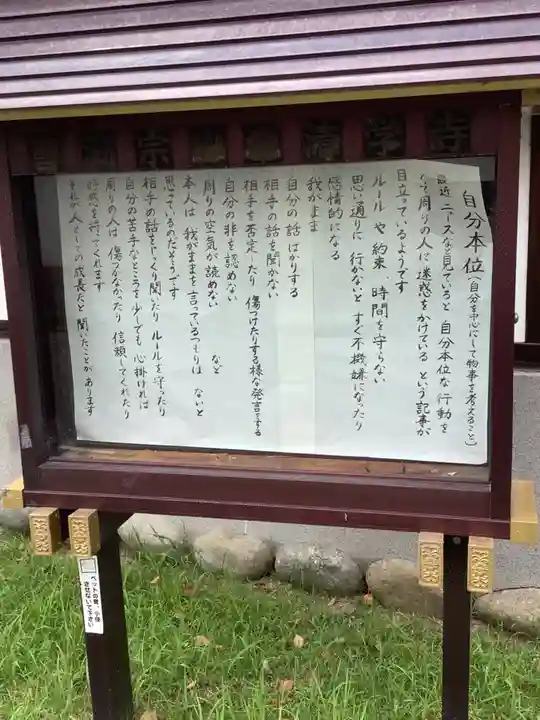 自分本位(自分を中心にして物事を考えること)
最近ニュースなど見ていると 自分本位な行動を
して周りの人に迷惑をかけている という記事が
目立っているようです
ルールや約束 時間を守らない
思い通りに 行かないと すぐ不機嫌になったり
感情的になる
我がまま
自分の話ばかりする
相手の話を聞かない
相手を否定したり 傷つけたりする様な発言をする
自分の非を認めない
周りの空気が読めない など
本人は 我がままを言っているつもりは ないと
思っているのだそうです
相手の話をじっくり聞いたり ルールを守ったり
自分の苦手なところを少しでも 心掛ければ
周りの人は 傷つかなかったり 信頼してくれたり
好感を持てくれます
人としての成長だと 聞いたことが あります
ペットの糞、小便
させないで下さい